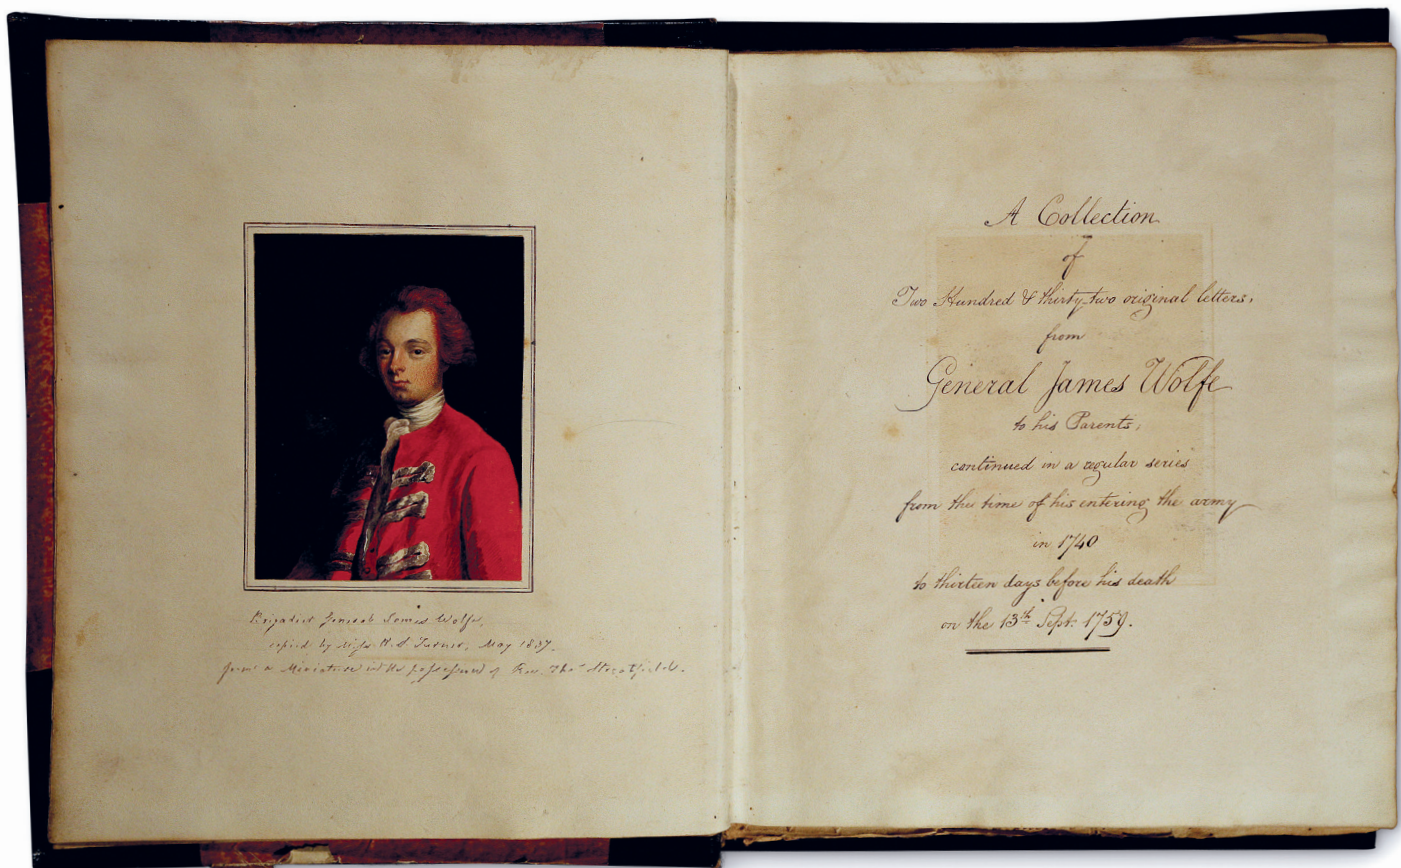 Brigadier General James Wolfe,
copied by Miss H. S. Turner, May 1837.
from a Miniature in the possession of Rev. Thos. Streatfield.
A Collection
of
Two Hundred & thirty-two original letters,
from
General James Wolfe
to his Parents,
continued in a regular series
from the time of his entering the army
in 1740
to thirteen days before his death
on the 13th Sept. 1759.